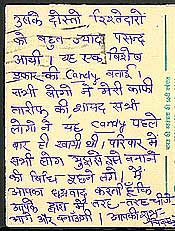 उसके दोस्तो, रिश्तेदारो
को बहुत ज्यादा पसन्द
आयी। यह एक विशेष
प्रकार की Candy बनाई
सभी लोगों ने मेरी काफी
तारीफ की, शायद सभी
लोगो ने यह Candy पहली
बार ही खायी थी। परिवार में
सभी लोग मुझसे इसे बनाने
की विधि पूछने लगे। मैं
आपका धन्यवाद करता हूँ कि
आपके द्वारा मैं तरह-तरह
और बनाऊंगी। आपकी